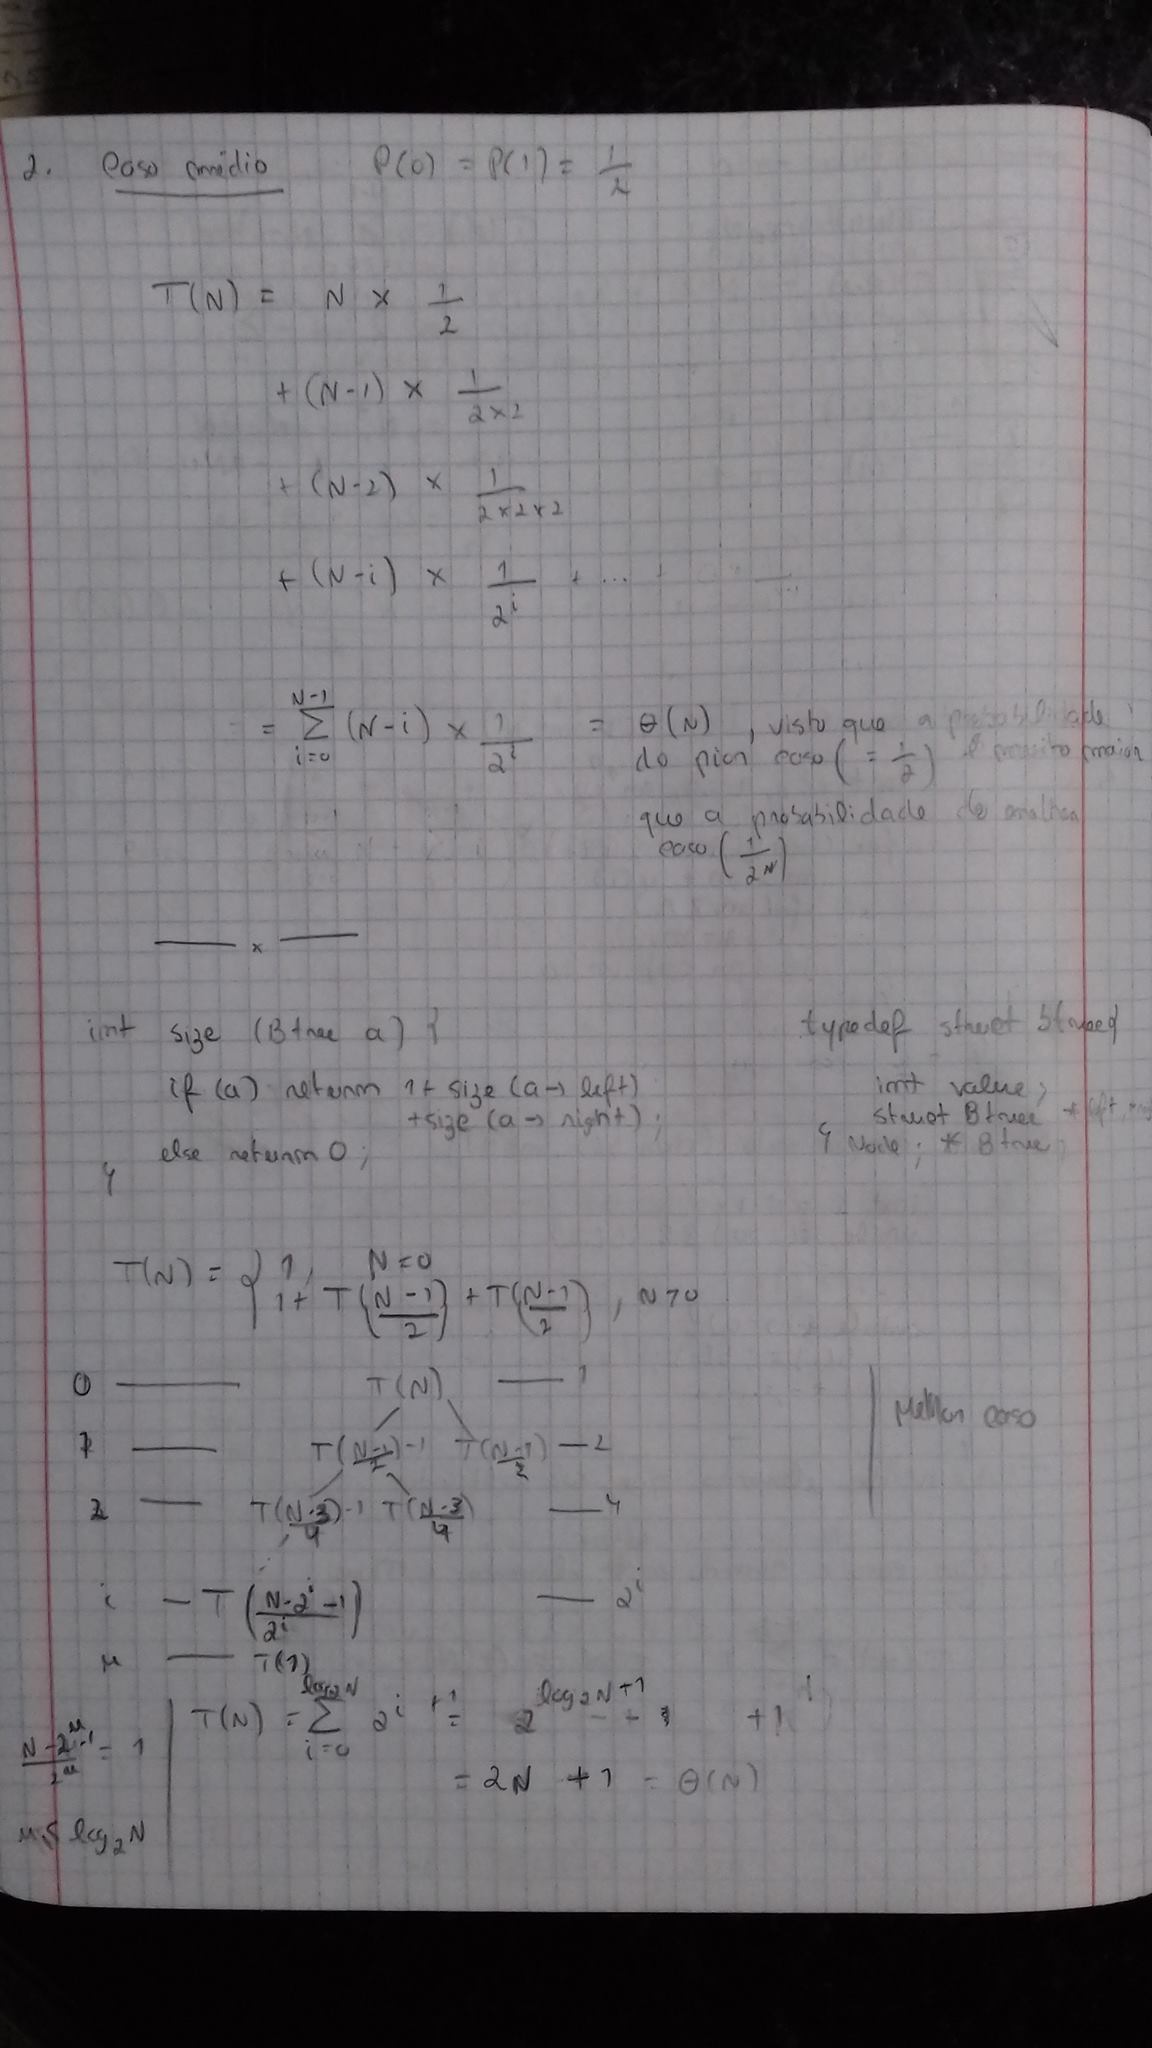 2. Caso médio P(0) = P(1) = 1/2
T(N) = N × 1/2
+ (N-1) × 1/(2×2)
+ (N-2) × 1/(2×2×2)
+ (N-i) × 1/2^i + ...
= Σ_{i=0}^{N-1} (N-i) × 1/2^i = θ(N), visto que a probabilidade
do pior caso (= 1/2) é muito maior
que a probabilidade do melhor
caso (1/2^N)
—— x ——
int size (Btree a) {
if (a) return 1 + size (a → left)
+ size (a → right);
else return 0;
}
typedef struct Btree {
int value;
struct Btree * left,
} Node; * Btree;
T(N) = { 1, N = 0
1 + T((N-1)/2) + T((N-1)/2), N > 0
0 —— T(N) —— 1
1 —— T((N-1)/2) - 1 T((N-1)/2) — 2
2 —— T((N-3)/4) - 1 T((N-3)/4) —— 4
Melhor caso
i — T((N-2^i-1)/2^i) —— 2^i
u —— T(1)
T(N) = Σ_{i=0}^{log₂N} 2^i + 1 = 2^{log₂N+1} +1
= 2N + 1 = θ(N)
(N-2^u-1)/2^u = 1
log₂N